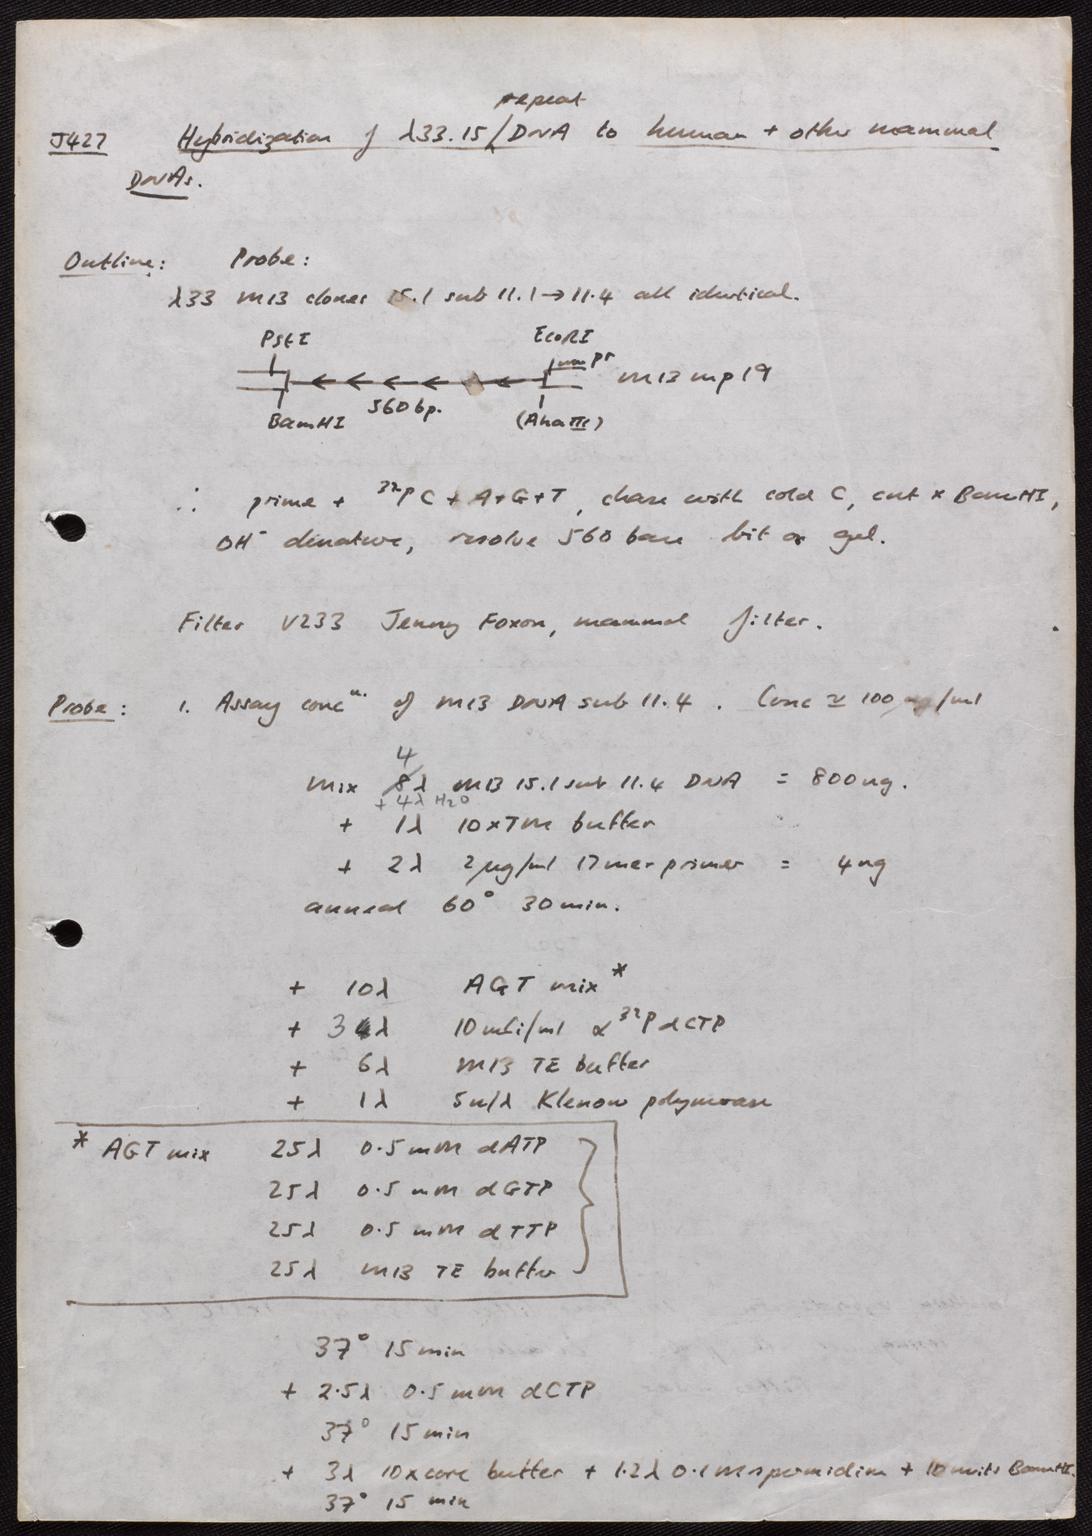 repeat
J427 Hybridization of λ33.15/DNA to human + other mammal
DNAs.
Outline: Probe:
λ33 M13 clones 15.1 sub 11.1 → 11.4 all identical.
PstI EcoRI
pr
M13 mp19
560 bp.
BamHI (AhaIII)
∴ prime + ³²P C + A+G+T, chase with cold C, cut × BamHI,
OH⁻ denature, resolve 560 base bit on gel.
Filter V233 Jenny Foxon, mammal filter.
Probe: 1. Assay concⁿ. of M13 DNA sub 11.4. Conc ≃ 100 /ml
4
mix 8λ M13 15.1 sub 11.4 DNA = 800ng.
+ 4λ H₂O
+ 1λ 10xTM buffer
+ 2λ 2μg/ml 17mer primer = 4ng
anneal 60° 30min.
+ 10λ AGT mix*
+ 3λ 10mCi/ml α³²P dCTP
+ 6λ M13 TE buffer
+ 1λ 5u/λ Klenow polymerase
* AGT mix 25λ 0.5mM dATP
25λ 0.5mM dGTP
25λ 0.5mM dTTP
25λ M13 TE buffer
37° 15min
+ 2.5λ 0.5mM dCTP
37° 15min
+ 3λ 10xcore buffer + 1.2λ 0.1M spermidine + 10units BamHI.
37° 15 min